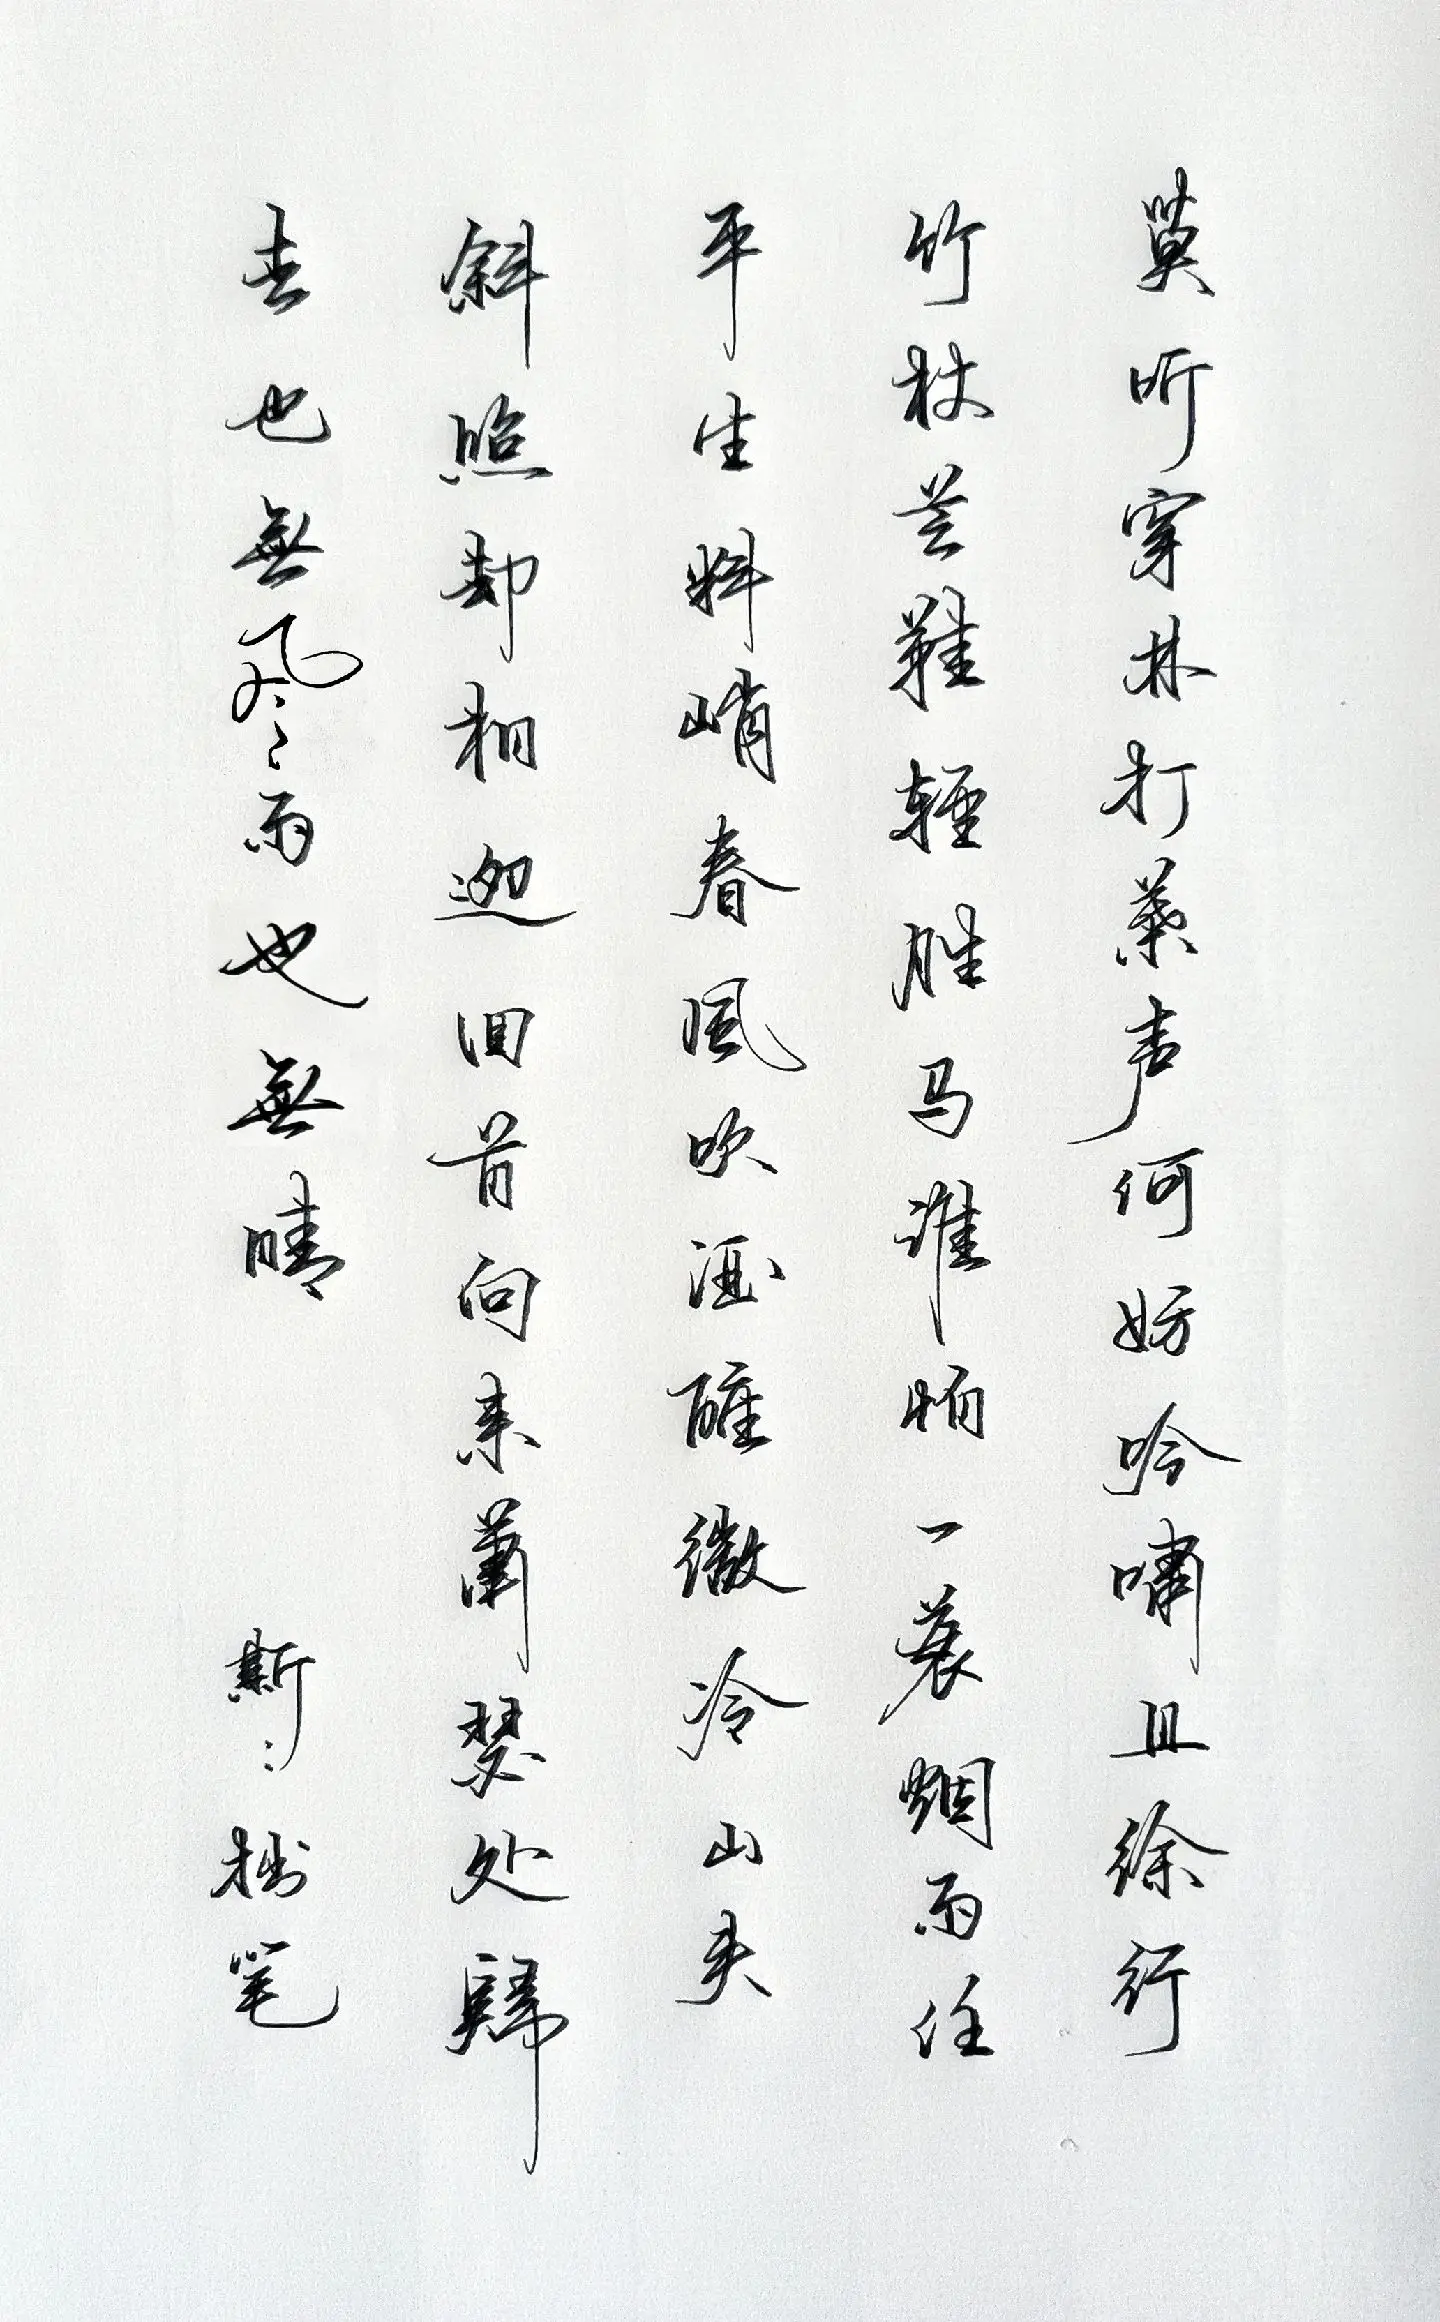 莫听穿林打葉声何妨吟啸且徐行
竹杖芒鞋轻胜马谁怕一蓑烟雨任
平生料峭春風吹酒醒微冷山头
斜照却相迎回首向来萧瑟处歸
去也無風雨也無晴
斯〻拙笔